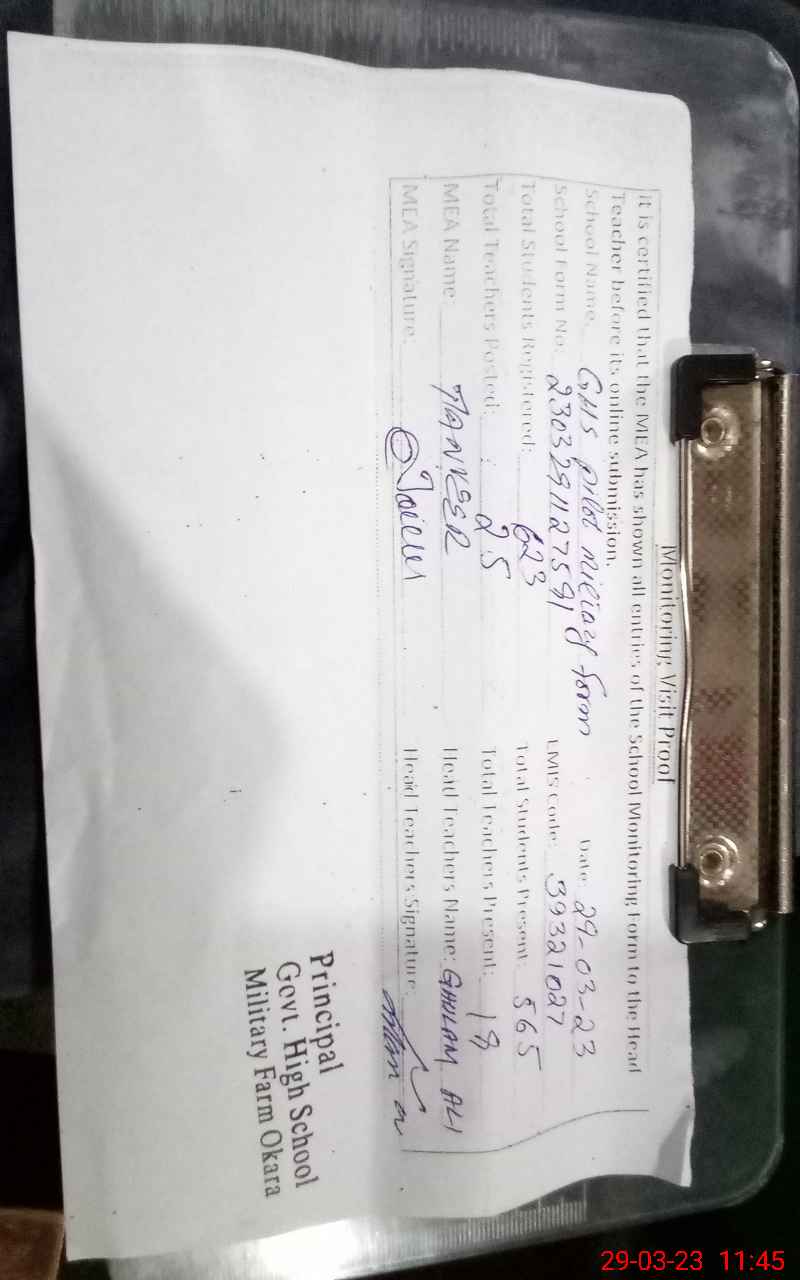 Monitoring Visit Proof
it is certified that the MEA has shown all entries of the School Monitoring Form to the Head
Teacher before its online submission.
School Name: GHS pilot military form Date: 29-03-23
School Form No: 2303291127591 EMIS Code: 39321027
Total Students Registered: 623 Total Students Present: 565
Total Teachers Posted: 25 Total Teachers Present:
MEA Name: TANVEER Head Teachers Name: GHULAM ALI
MEA Signature: Head Teachers Signature:
Principal
Govt. High School
Military Farm Okara
29-03-23 11:45